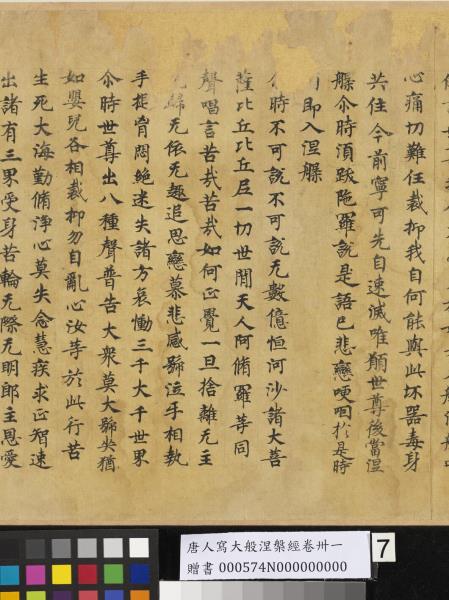 心痛切難任裁抑我自何能與此坏器毒身
共住今前寧可先自速滅唯願世尊後當涅
槃尒時湏跋陁羅說是語已悲戀哽咽於是時
即入涅槃
時不可說不可說无數億恒河沙諸大菩
薩比丘比丘尼一切世間天人阿脩羅等同
聲唱言苦哉苦哉如何正覺一旦捨離无主
歸无依无趣追思戀慕悲感號泣手相執
手搥胷悶絶迷失諸方哀慟三千大千世界
尒時世尊出八種聲普告大衆莫大號哭猶
如嬰兒各相裁抑勿自亂心汝等於此行苦
生死大海勤脩淨心莫失念慧疾求正智速
出諸有三界受身苦輪无際无明郎主恩愛
唐人寫大般涅槃經卷卅一
贈書 000574N000000000
7